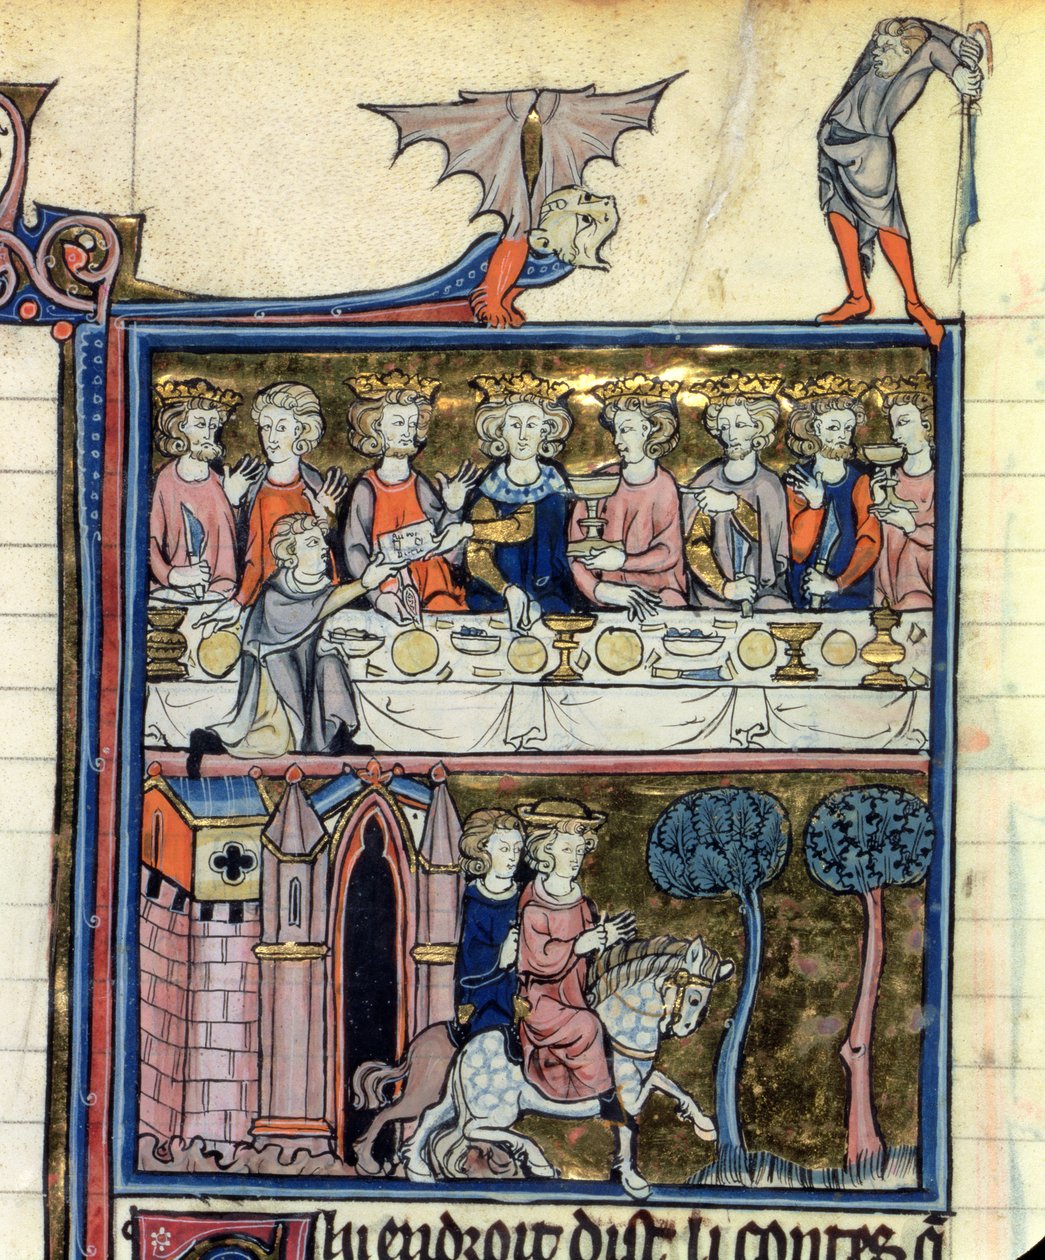 hi endroit dist li contes q̄